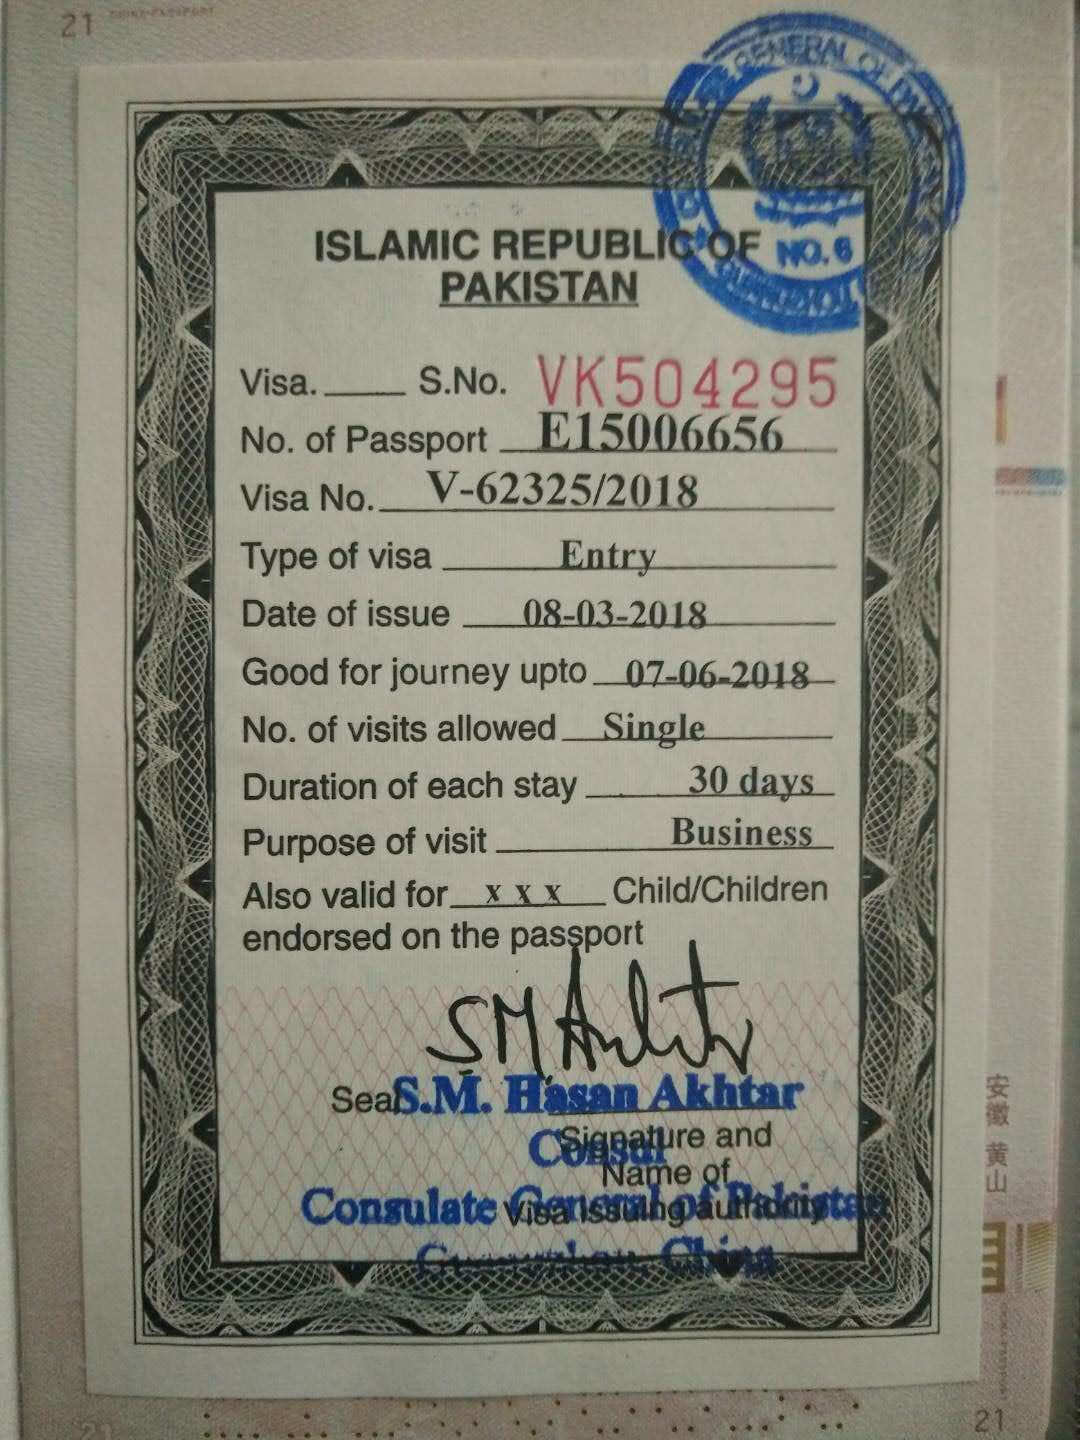 21 CHINA·PASSPORT
NO. 6
ISLAMIC REPUBLIC OF
PAKISTAN
Visa. S.No. VK504295
No. of Passport E15006656
Visa No. V-62325/2018
Type of visa Entry
Date of issue 08-03-2018
Good for journey upto 07-06-2018
No. of visits allowed Single
Duration of each stay 30 days
Purpose of visit Business
Also valid for x x x Child/Children
endorsed on the passport
SM Akhtar
Seal S.M. Hasan Akhtar
Consul
Signature and
Name of
Visa Issuing authority
Consulate General of Pakistan
China
安徽 黄山
21
21